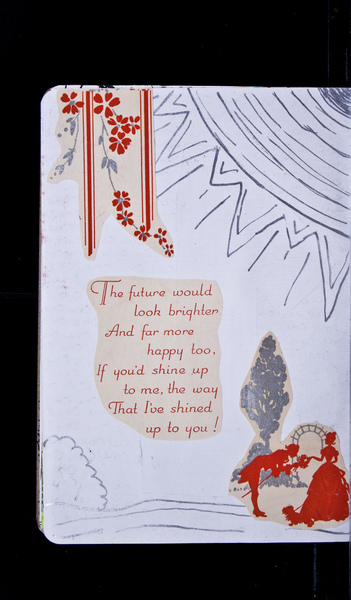 The future would
look brighter
And far more
happy too,
If you'd shine up
to me, the way
That I've shined
up to you!